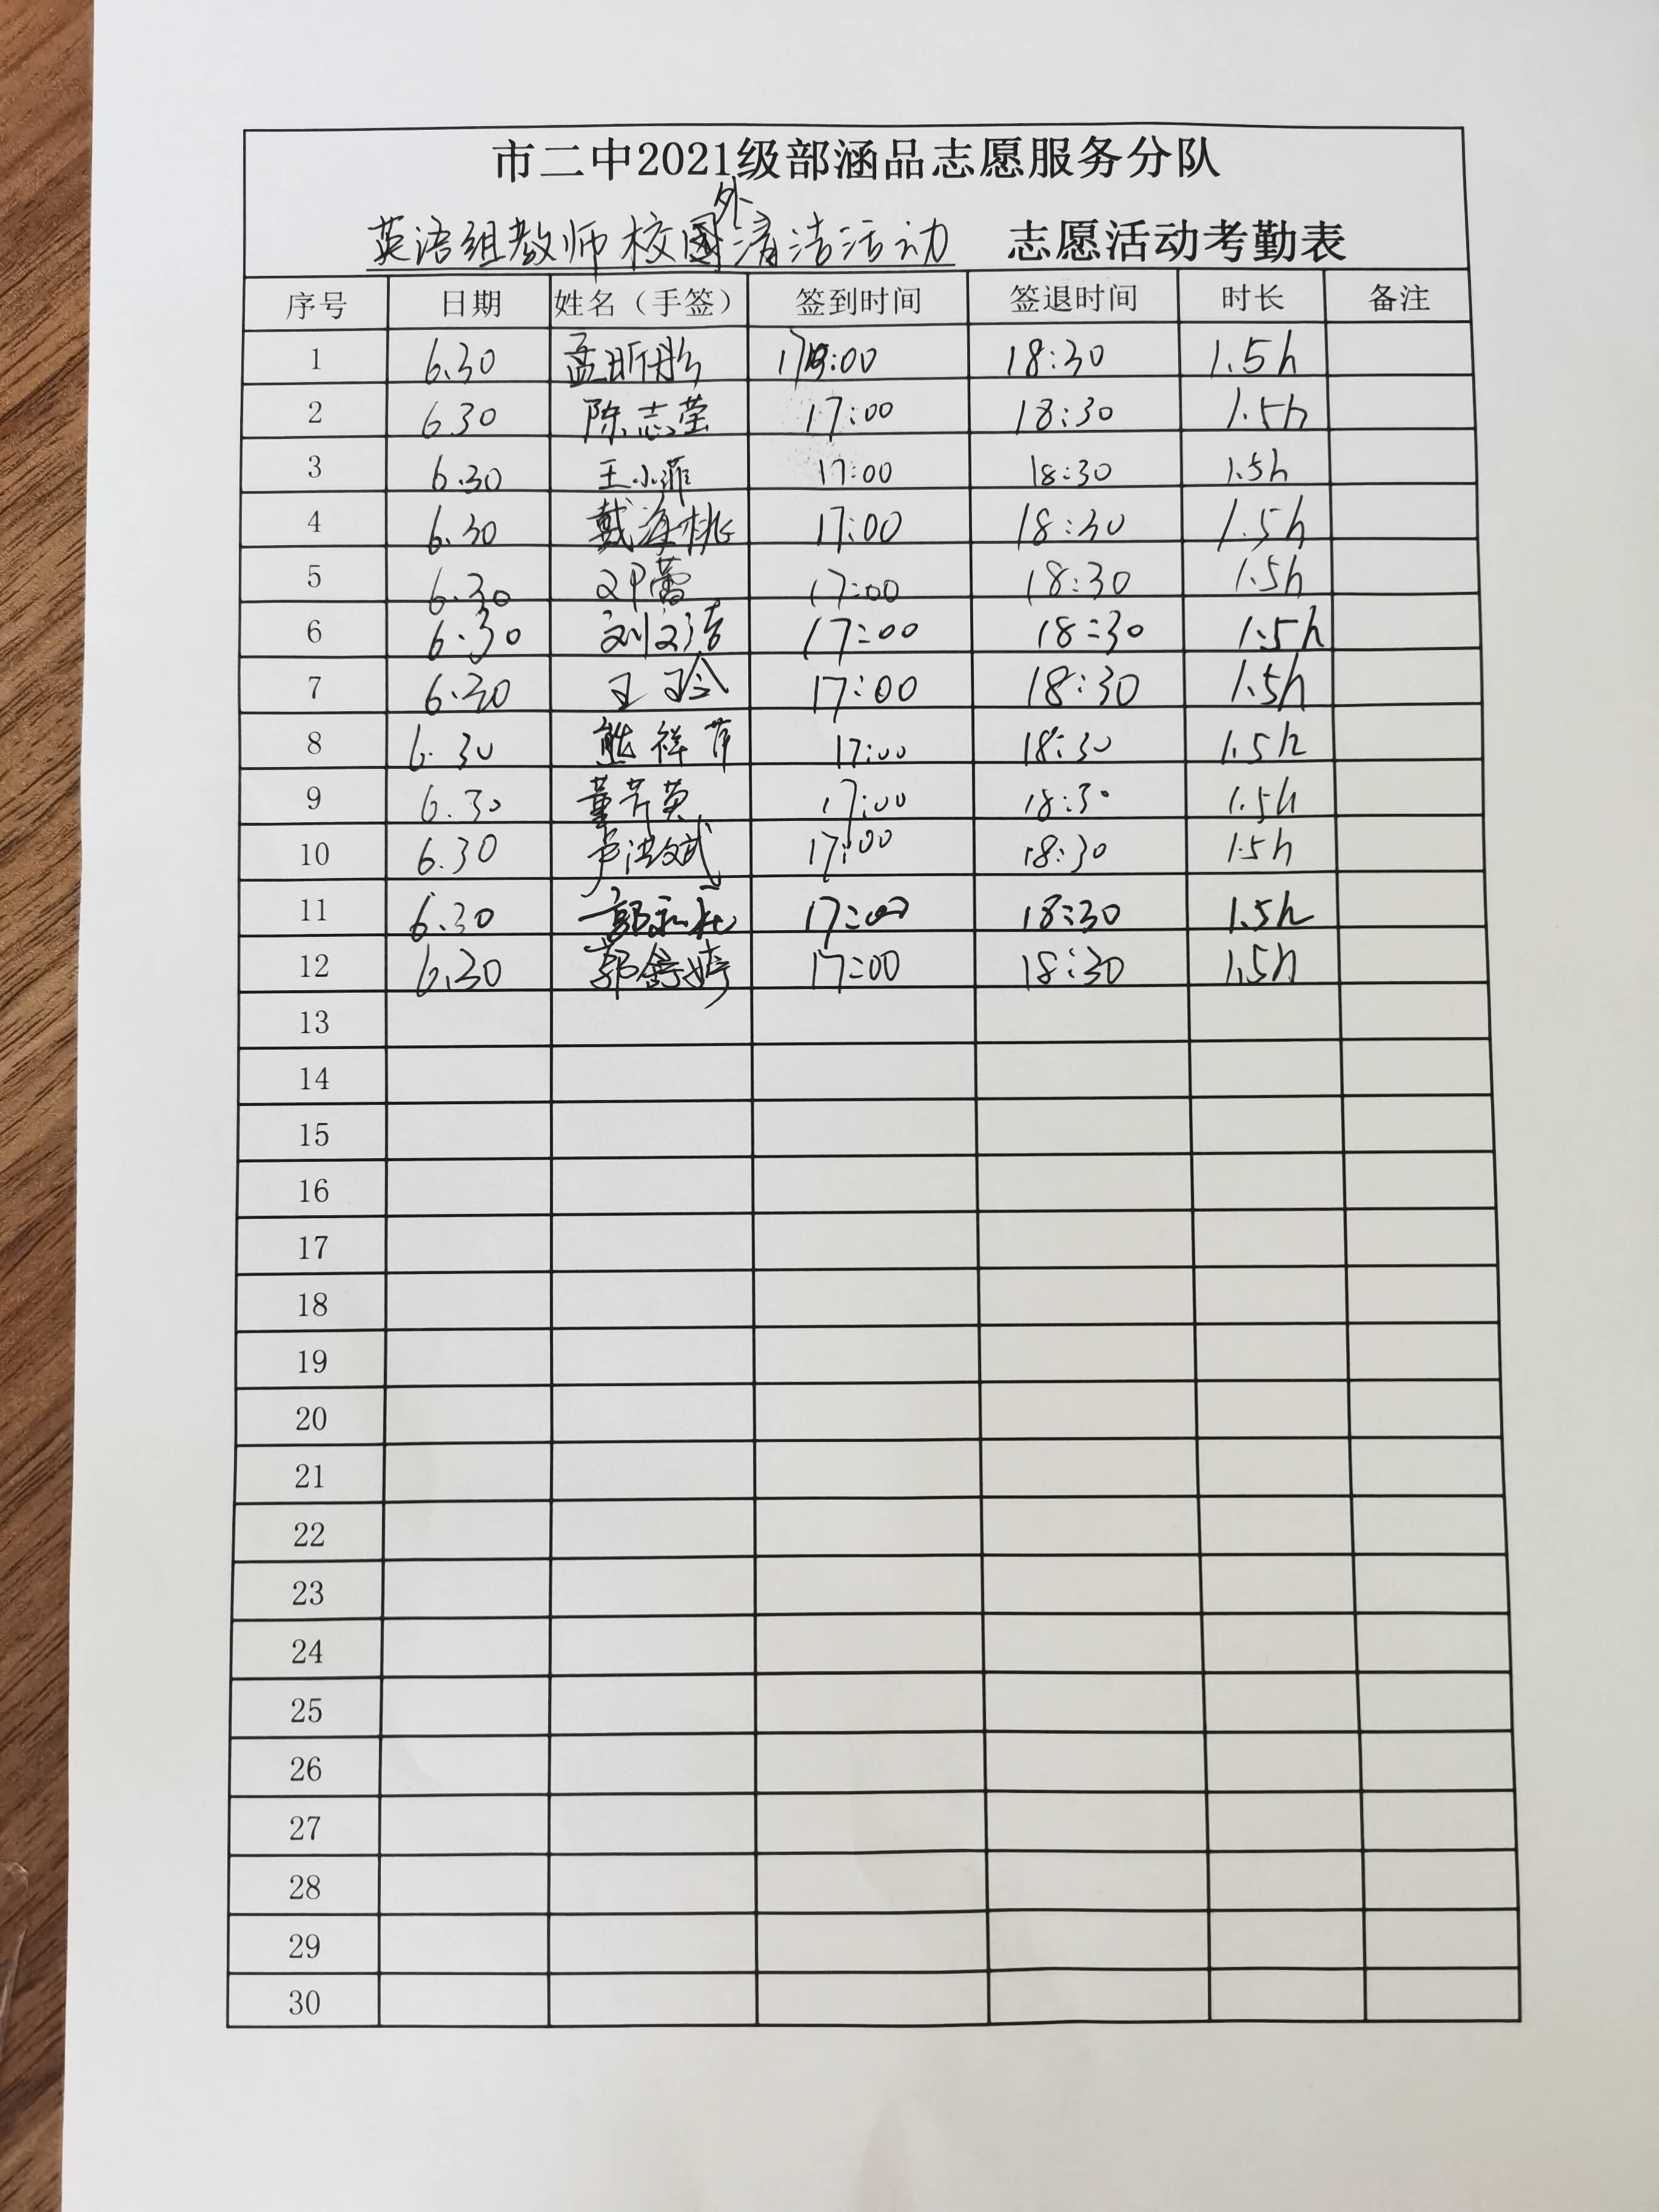 市二中2021级部涵品志愿服务分队
外
英语组教师校清洁活动 志愿活动考勤表
序号 日期 姓名（手签） 签到时间 签退时间 时长 备注
1 6.30 孟昕彤 17:00 18:30 1.5h
2 6.30 陈志莹 17:00 18:30 1.5h
3 6.30 王小菲 17:00 18:30 1.5h
4 6.30 戴海桃 17:00 18:30 1.5h
5 6.30 邓蕾 17:00 18:30 1.5h
6 6.30 刘文洁 17:00 18:30 1.5h
7 6.30 王玲 17:00 18:30 1.5h
8 6.30 熊祥 17:00 18:30 1.5h
9 6.30 董芳英 17:00 18:30 1.5h
10 6.30 卢洪斌 17:00 18:30 1.5h
11 6.30 郭 17:00 18:30 1.5h
12 6.30 郭婷 17:00 18:30 1.5h
13
14
15
16
17
18
19
20
21
22
23
24
25
26
27
28
29
30